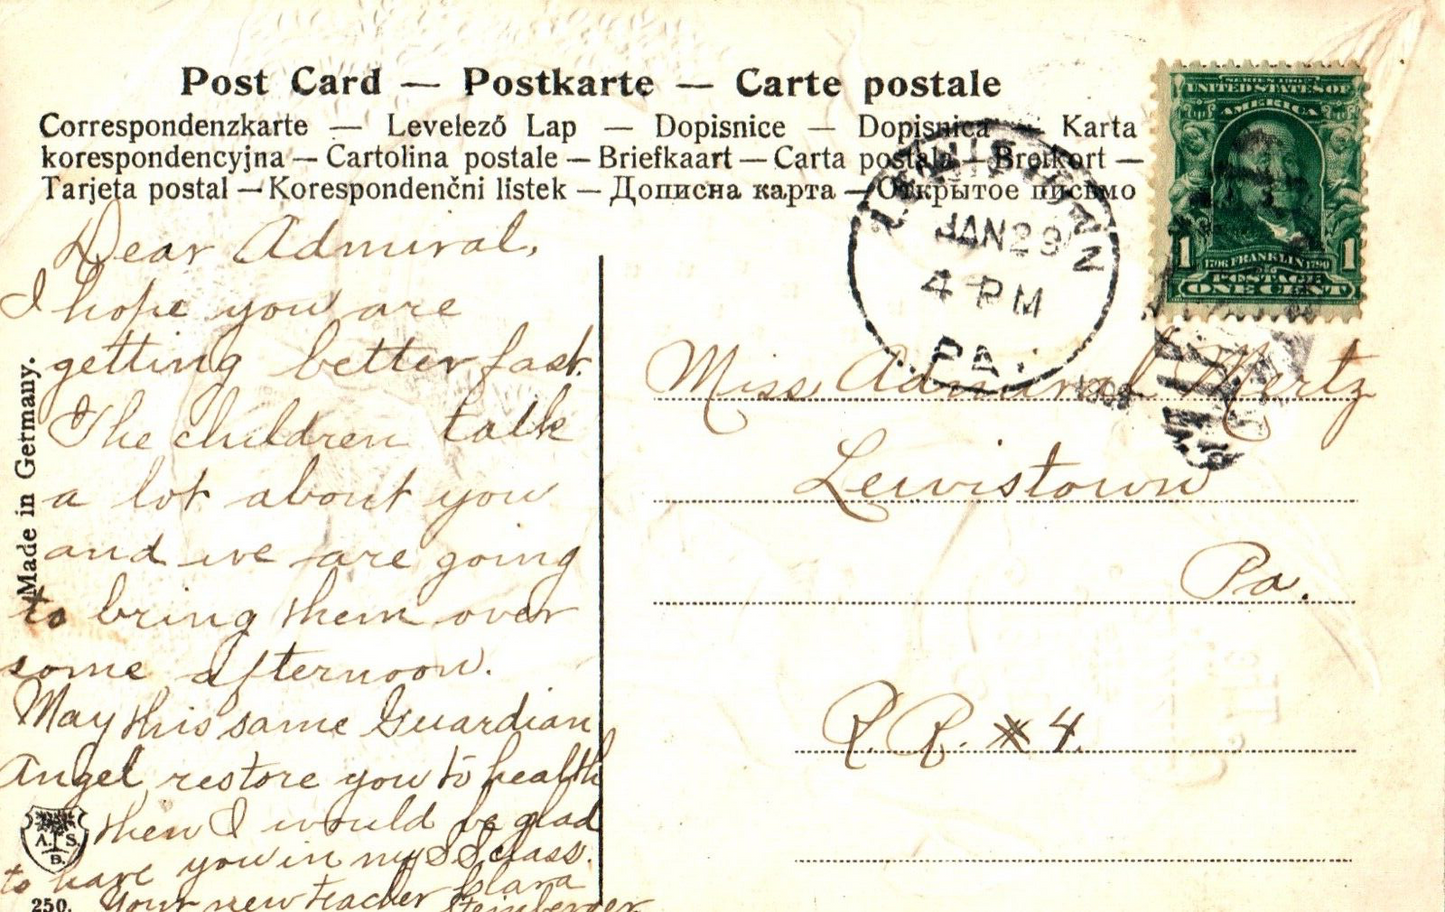 Post Card — Postkarte — Carte postale
Correspondenzkarte — Levelező Lap — Dopisnice — Dopisnica — Karta
korespondencyjna — Cartolina postale — Briefkaart — Carta postala — Brefkort —
Tarjeta postal — Korespondenčni listek — Дописна карта — Открытое письмо
SERIES 1902
UNITED STATES OF
AMERICA
1 1
1706 FRANKLIN 1790
POSTAGE
ONE CENT
LEWISTOWN
JAN 29
4 PM
PA.
Dear Admiral,
I hope you are
getting better fast.
The children talk
a lot about you
and we are going
to bring them over
some afternoon.
May this same Guardian
Angel restore you to health
then I would be glad
to have you in my S.S. class.
Your new teacher Clara
Steinberger
Miss Admiral Wertz
Lewistown
Pa.
R.R. #4.
Made in Germany.
A. S.
B.
250.